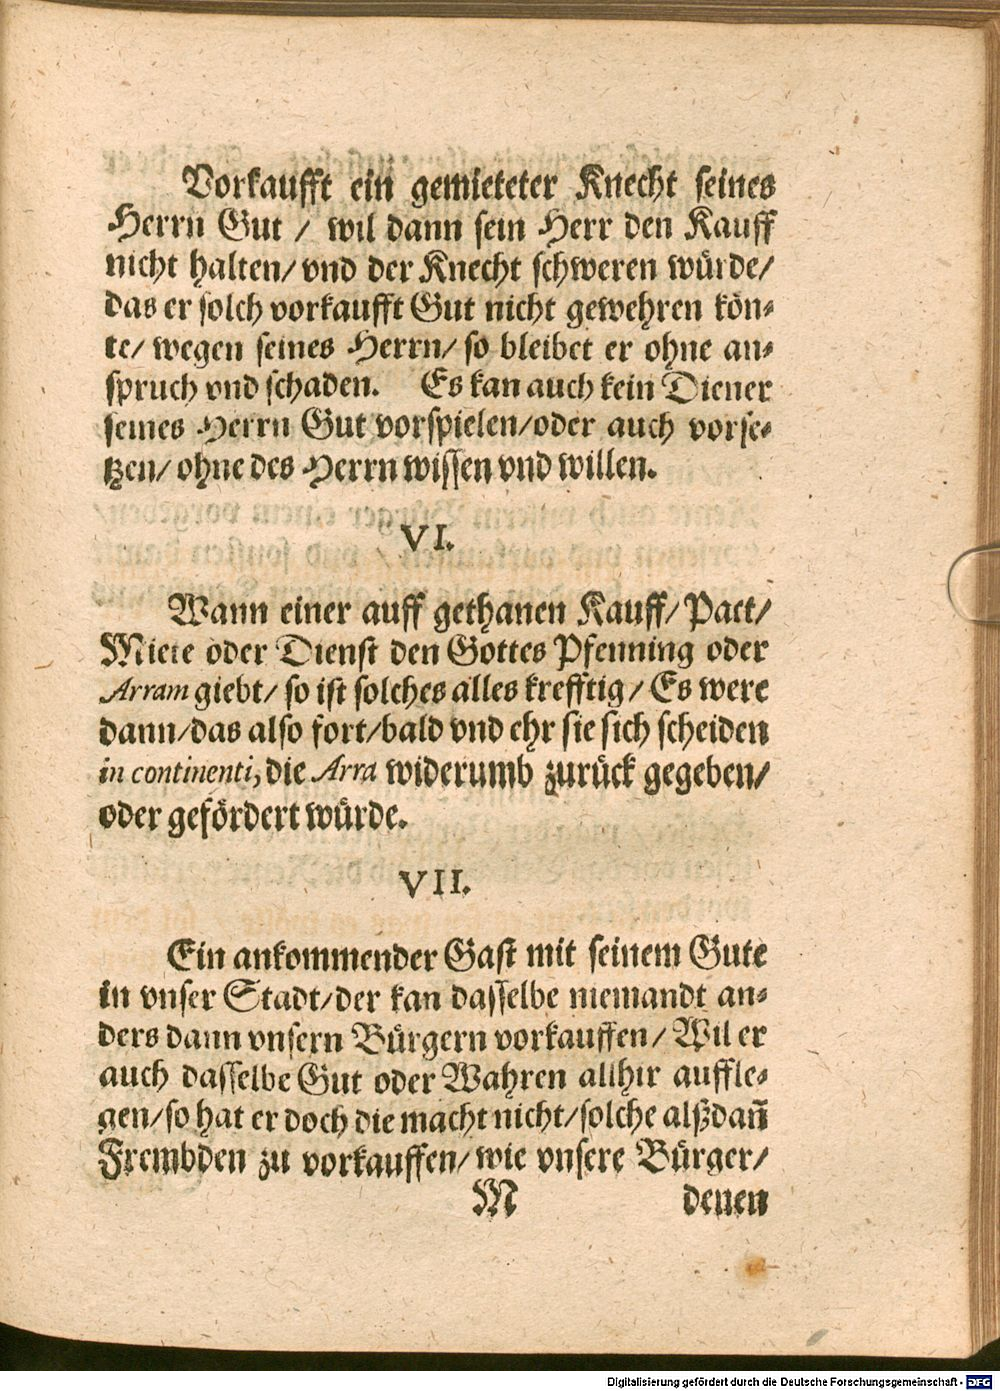 Vorkaufft ein gemieteter Knecht seines
Herrn Gut / wil dann sein Herr den Kauff
nicht halten/ vnd der Knecht schweren würde/
das er solch vorkaufft Gut nicht gewehren kön-
te/ wegen seines Herrn/ so bleibet er ohne an-
spruch vnd schaden. Es kan auch kein Diener
seines Herrn Gut vorspielen/oder auch vorse-
tzen/ ohne des Herrn wissen vnd willen.
VI.
Wann einer auff gethanen Kauff/ Pact/
Miete oder Dienst den Gottes Pfenning oder
Arram giebt/ so ist solches alles krefftig/ Es were
dann/das also fort/bald vnd ehr sie sich scheiden
in continenti, die Arra widerumb zurück gegeben/
oder gefördert würde.
VII.
Ein ankommender Gast mit seinem Gute
in vnser Stadt/der kan dasselbe niemandt an-
ders dann vnsern Bürgern vorkauffen/ Wil er
auch dasselbe Gut oder Wahren allhir auffle-
gen/so hat er doch die macht nicht/solche alßdañ
Frembden zu vorkauffen/ wie vnsere Bürger/
M denen
Digitalisierung gefördert durch die Deutsche Forschungsgemeinschaft - DFG